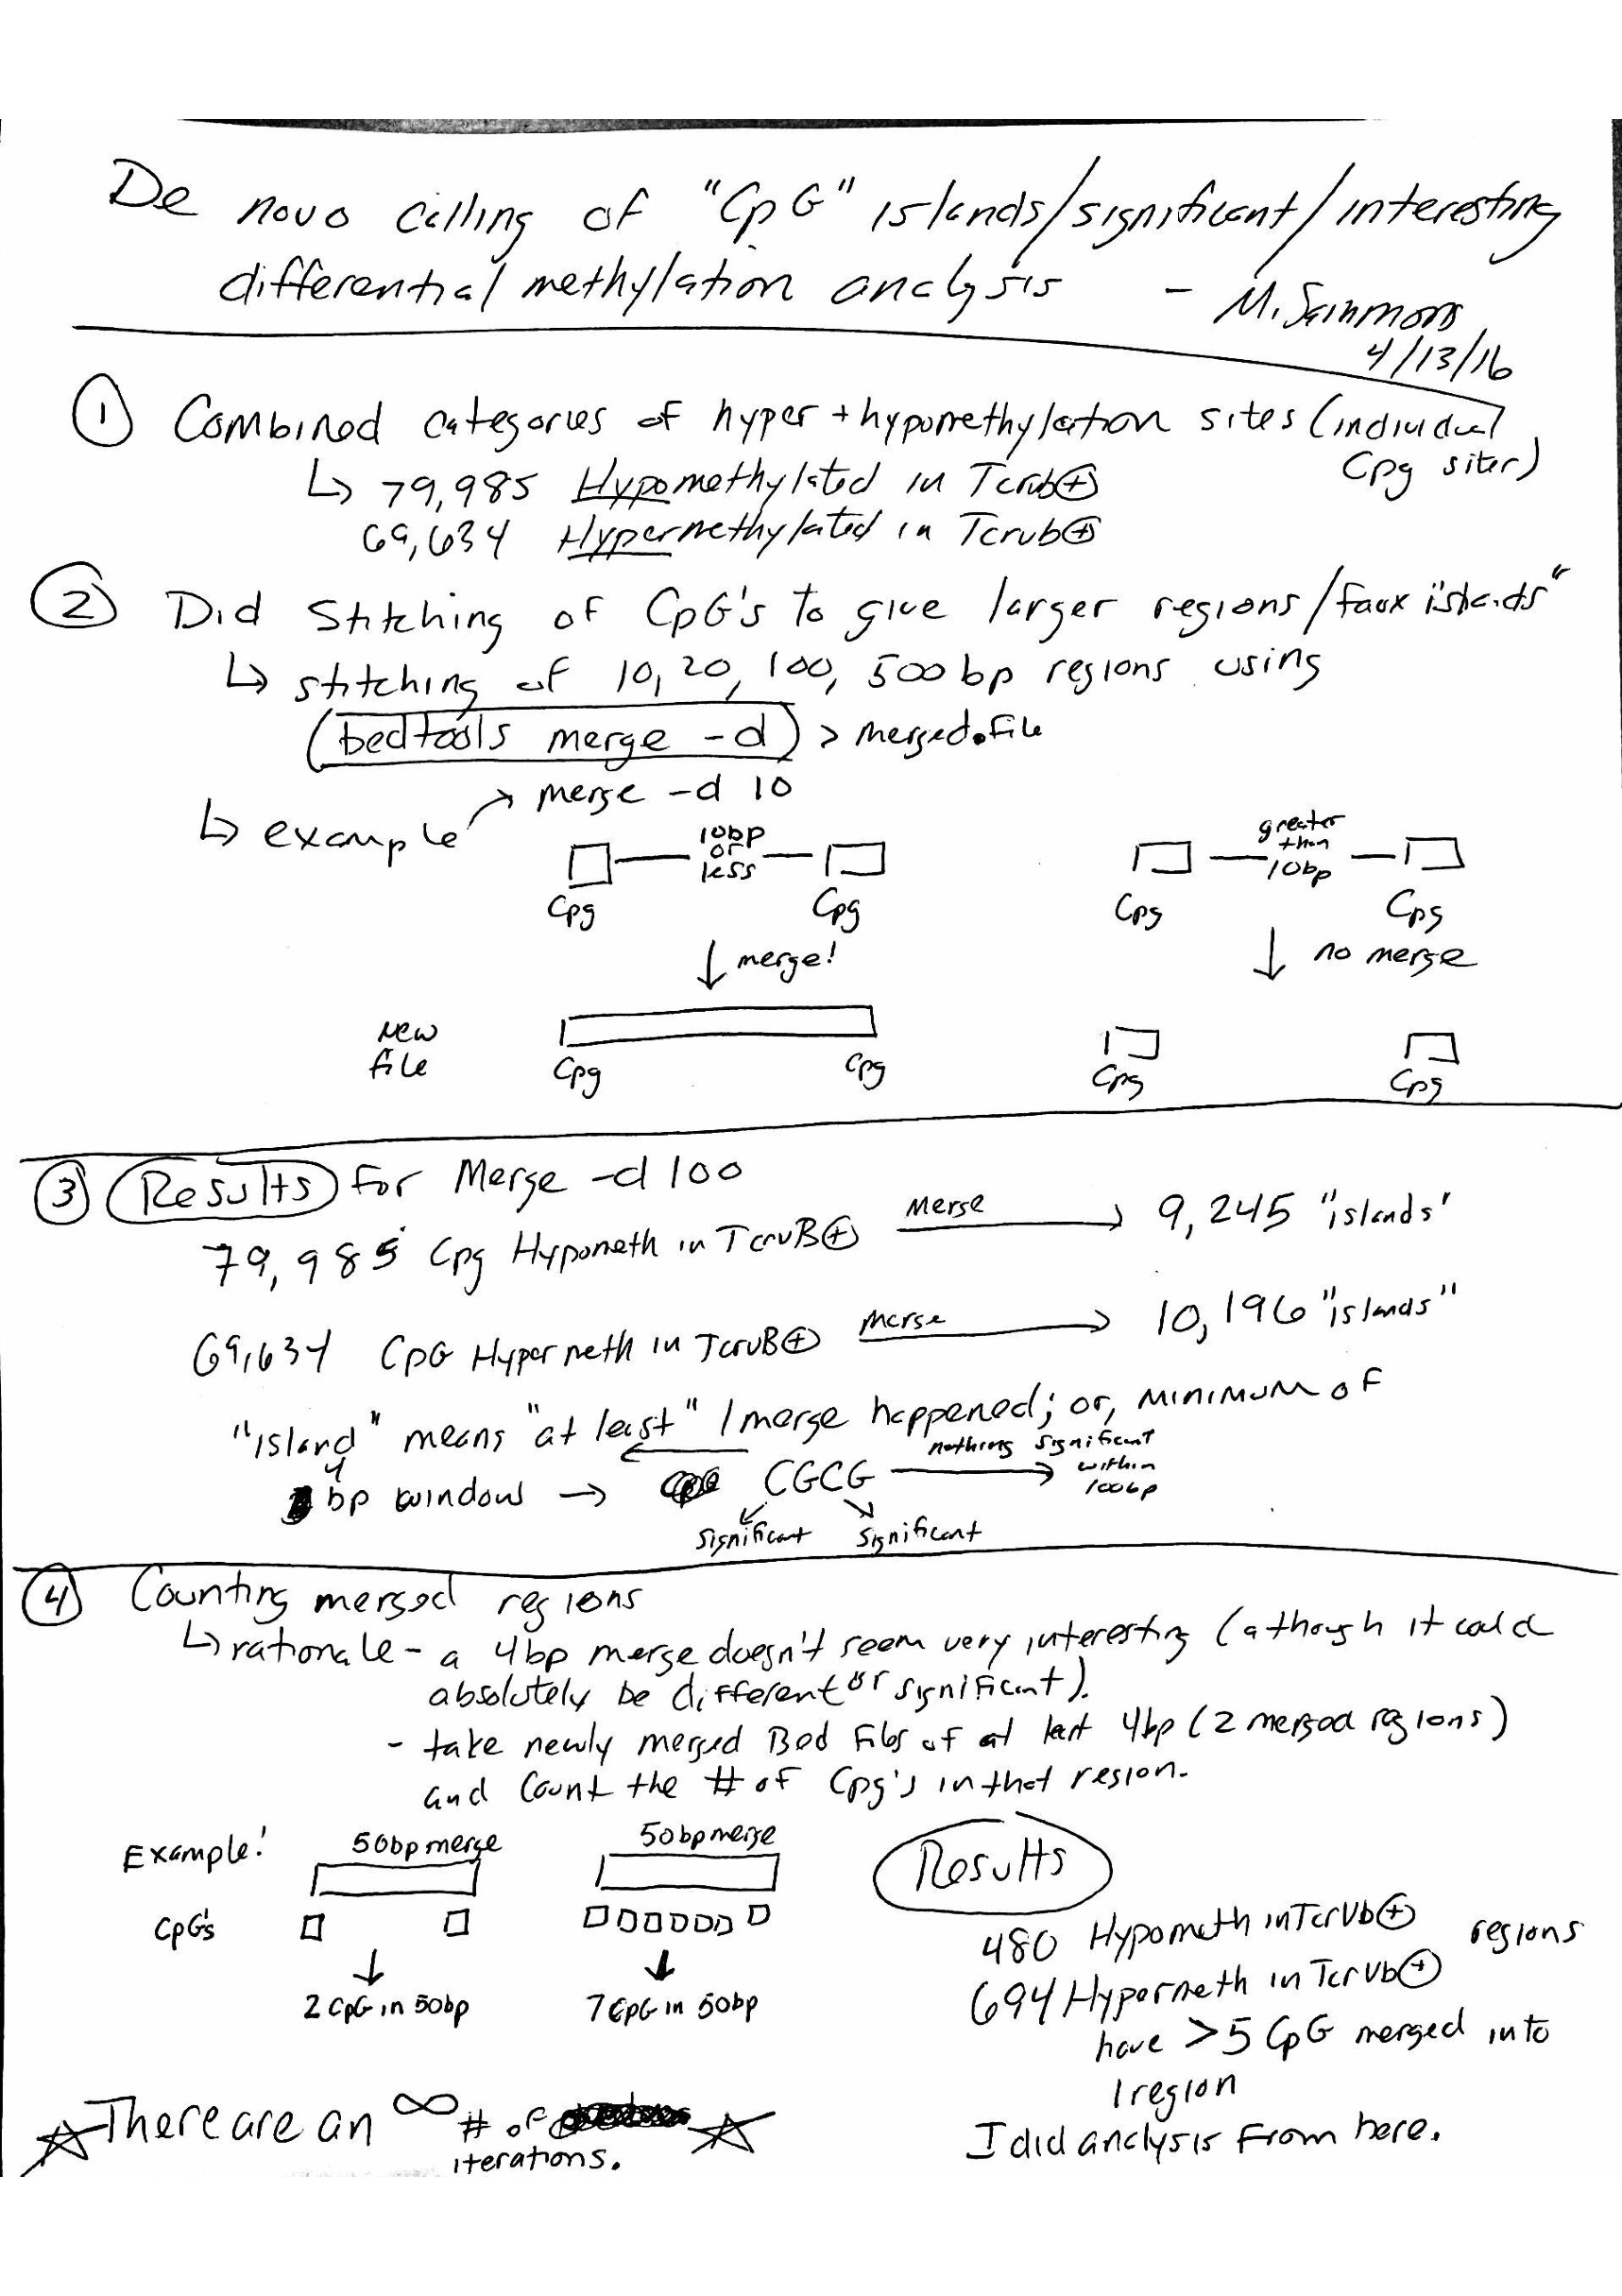 De novo calling of "CpG" islands/significant/interesting
differential methylation analysis - M. Sammons
4/13/16
① Combined categories of hyper + hypomethylation sites (individual
Cpg sites)
↳ 79,985 Hypomethylated in Tcrub⊕
69,634 Hypermethylated in Tcrub⊕
② Did Stitching of CpG's to give larger regions/faux "islands"
↳ stitching of 10, 20, 100, 500 bp regions using
(bedtools merge -d) > merged.file
↳ example → merge -d 10
10bp or less
greater than 10bp
Cpg Cpg Cpg Cpg
↓ merge! ↓ no merge
New file
Cpg Cpg Cpg Cpg
③ Results for Merge -d 100
79,985 Cpg Hypometh in TcruB⊕ merge → 9,245 "islands"
69,634 CpG Hypermeth in TcruB⊕ merge → 10,196 "islands"
"island" means "at least" 1 merge happened; or, minimum of
4 bp window → CGCG nothing significant within 100bp
significant significant
④ Counting merged regions
↳ rationale - a 4bp merge doesn't seem very interesting (athough it could
absolutely be different or significant).
- take newly merged Bed files of at least 4bp (2 merged regions)
and count the # of Cpg's in that region.
Example! 50bp merge 50bp merge
CpG's
2 CpG in 50bp 7 CpG in 50bp
Results
480 Hypometh in TcrVb⊕ regions
694 Hypermeth in TcrVb⊕
have >5 CpG merged into
1 region
I did analysis from here.
☆ There are an ∞ # of ☆
iterations.